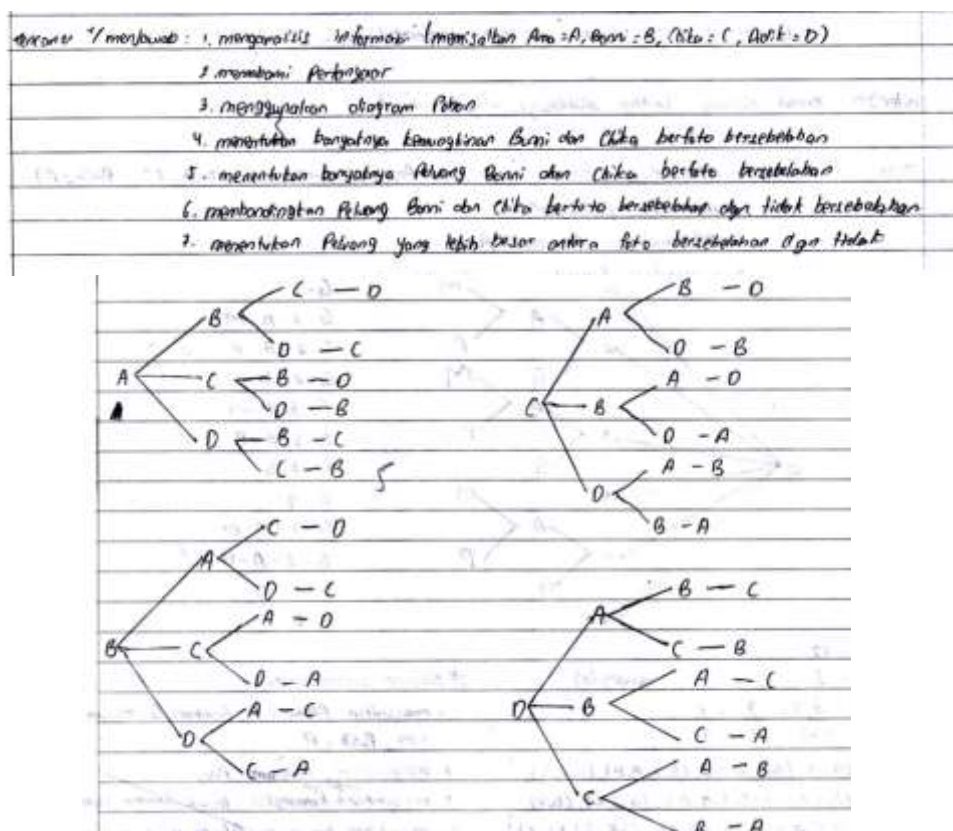 menjawab : 1. menganalisis informasi (memisalkan Ana = A, Bonni = B, Chika = C, = D)
2. memahami Pertanyaan
3. menggunakan diagram Pohon
4. menentukan banyaknya kemungkinan Bonni dan Chika berfoto bersebelahan
5. menentukan banyaknya Peluang Bonni dan Chika berfoto bersebelahan
6. membandingkan Peluang Bonni dan Chika berfoto bersebelahan dgn tidak bersebelahan
7. menentukan Peluang yang lebih besar antara foto bersebelahan dgn tidak
C — D
B
D — C
A C B — D
D — B
D B — C
C — B
5
B — D
A
D — B
C B A — D
D — A
D A — B
B — A
C — D
A
D — C
B C A — D
D — A
D A — C
C — A
B — C
A
C — B
D B A — C
C — A
C A — B
B — A